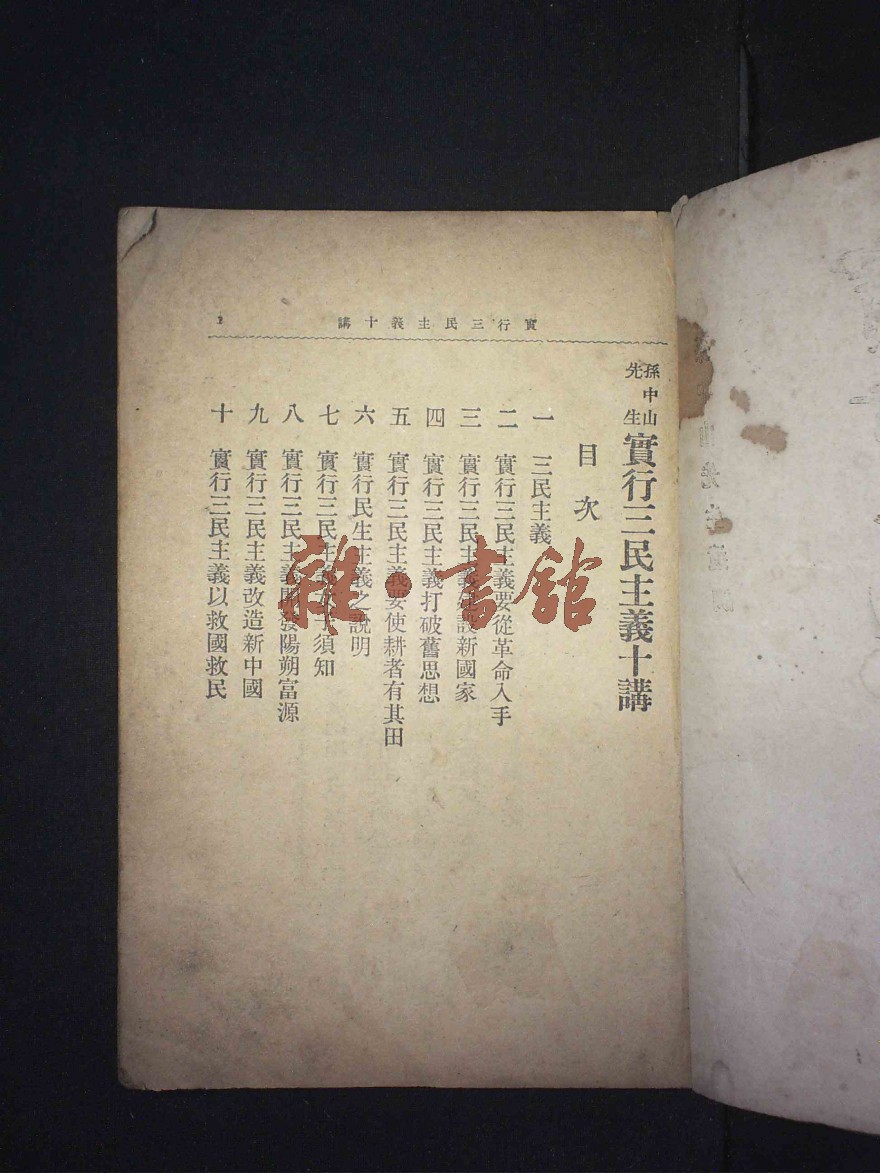 實行三民主義十講
孫中山先生實行三民主義十講
目次
一 三民主義
二 實行三民主義要從革命入手
三 實行三民主義建設新國家
四 實行三民主義打破舊思想
五 實行三民主義要使耕者有其田
六 實行民生主義之說明
七 實行三民主義須知
八 實行三民主義開發陽朔富源
九 實行三民主義改造新中國
十 實行三民主義以救國救民
雜·書館